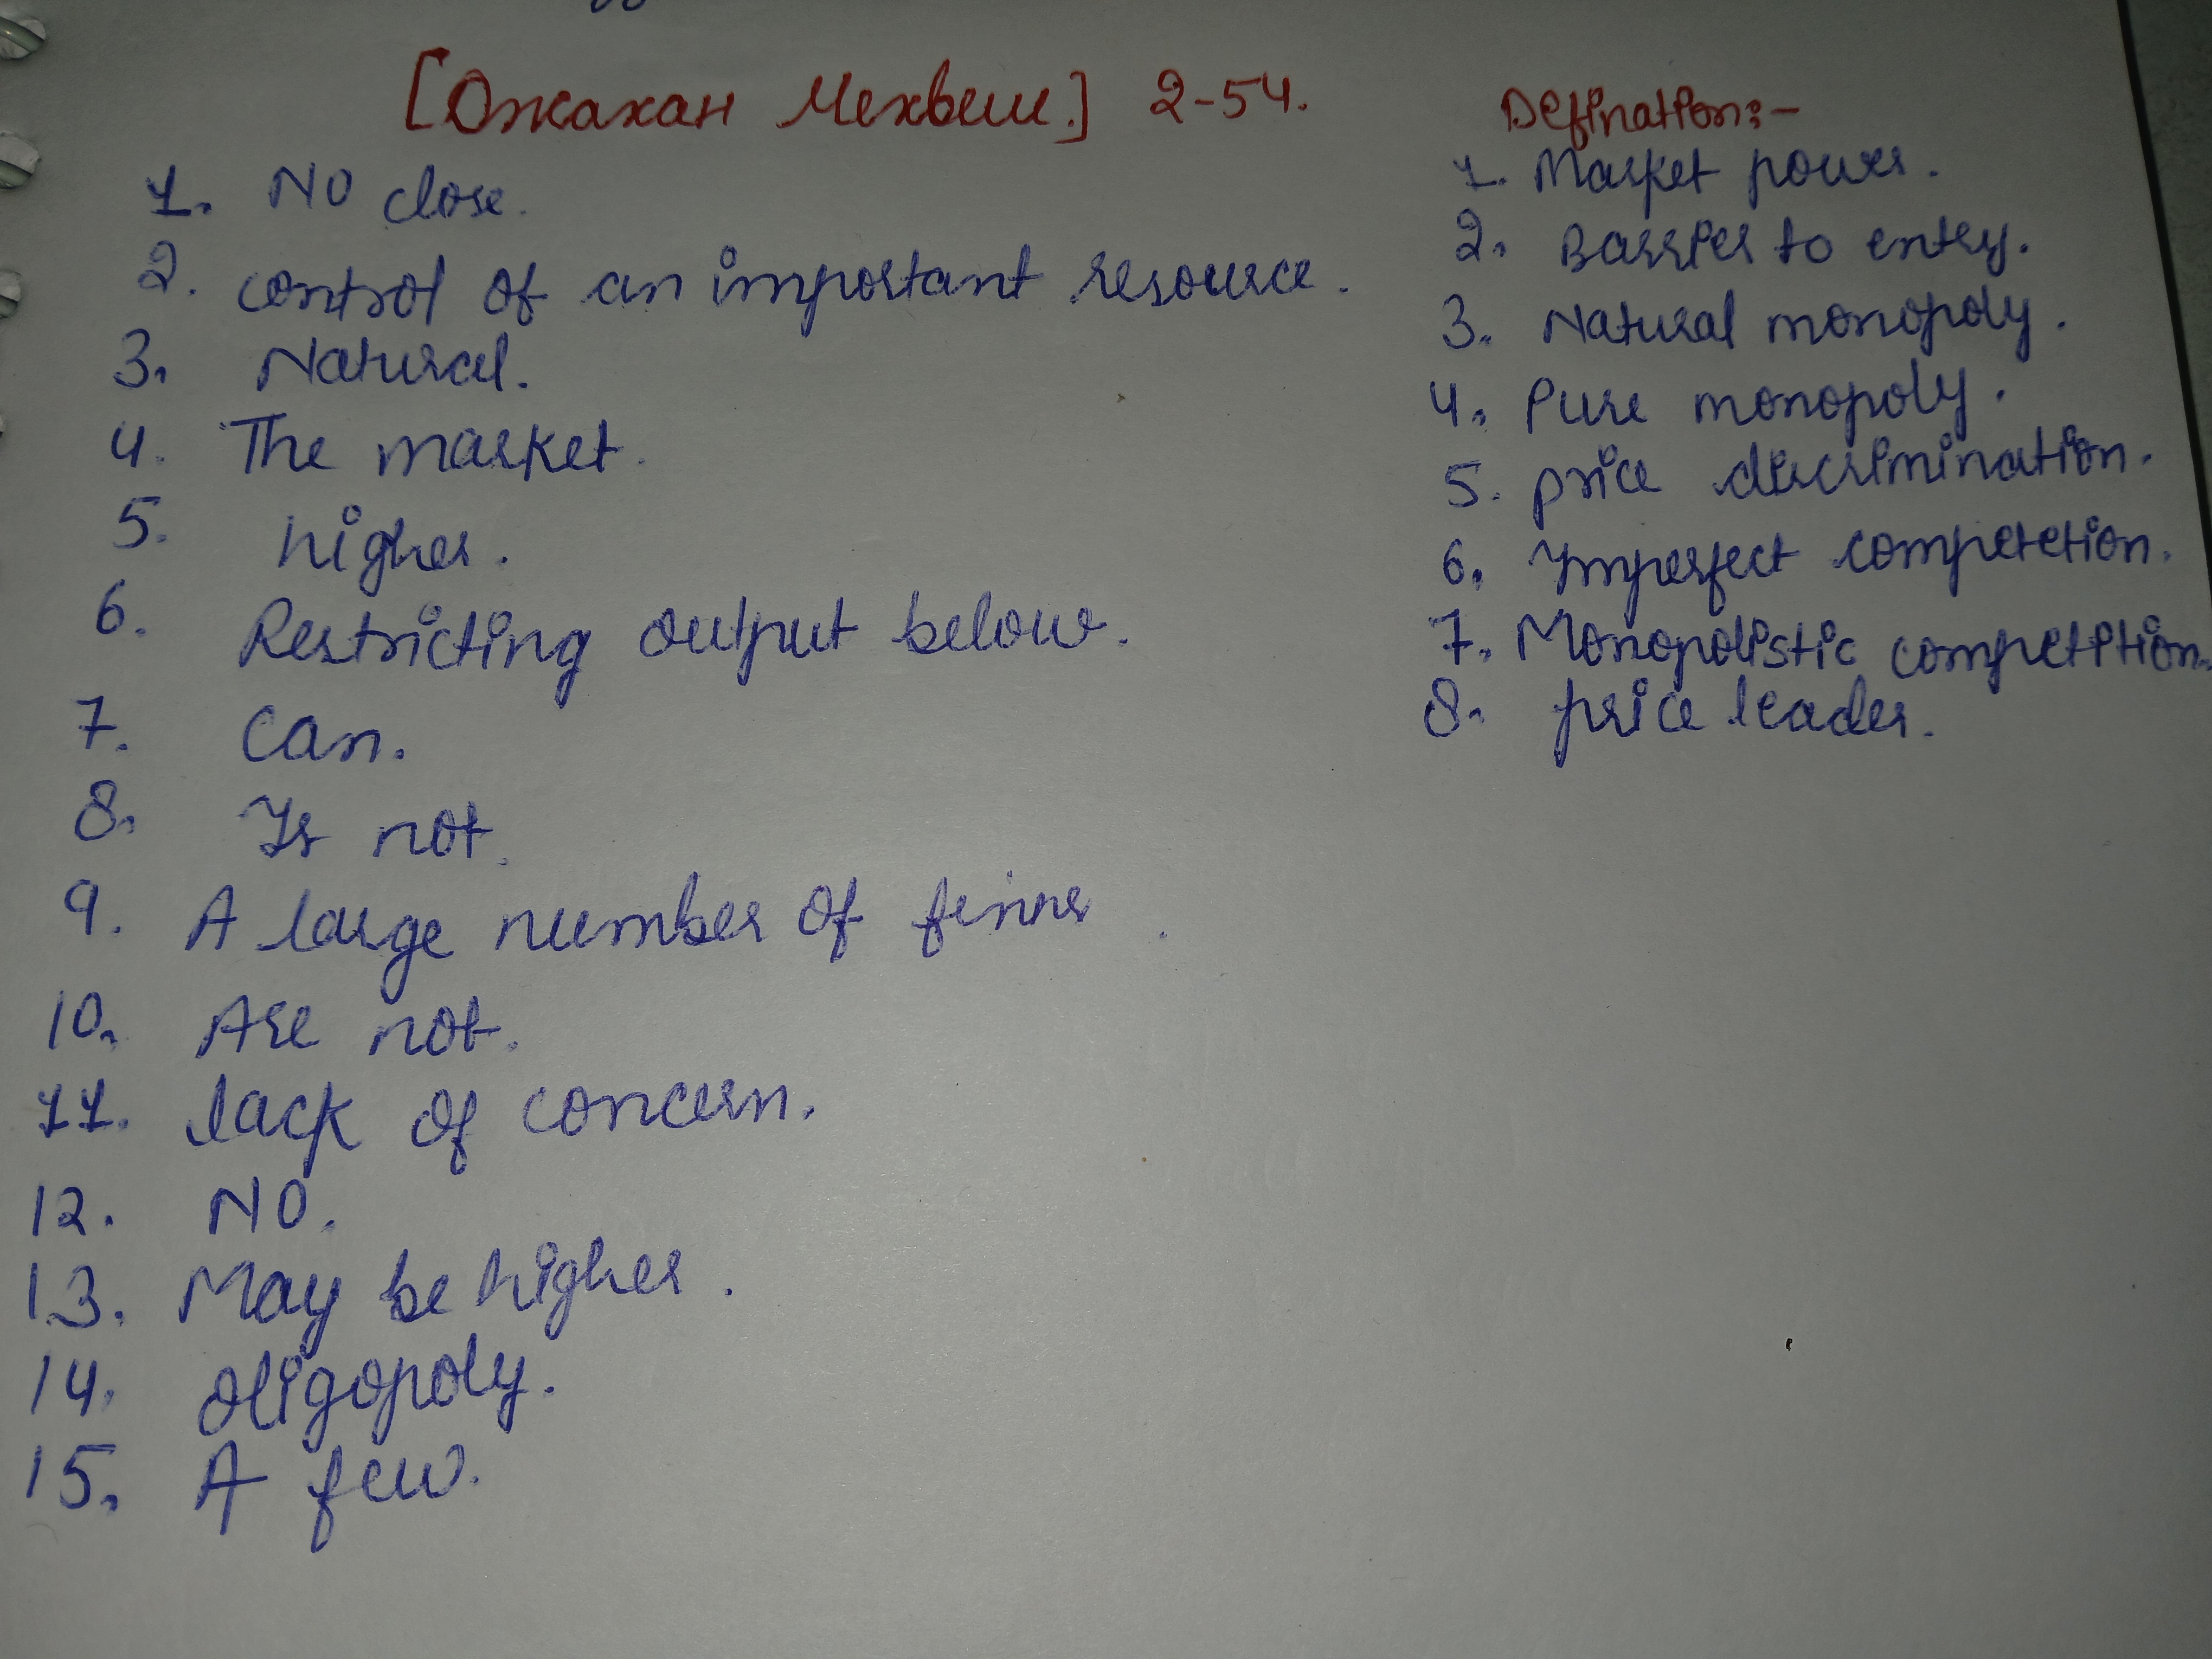 [Ожахан Мехвеш.] 2-54.
1. No close.
2. control of an important resource.
3. Natural.
4. The market.
5. higher.
6. Restricting output below.
7. Can.
8. Is not.
9. A large number of firms.
10. Are not.
11. lack of concern.
12. NO.
13. May be higher.
14. Oligopoly.
15. A few.
Defination:-
1. Market power.
2. Barrier to entry.
3. Natural monopoly.
4. Pure monopoly.
5. price discrimination.
6. Imperfect competetion.
7. Monopolistic competition.
8. price leader.